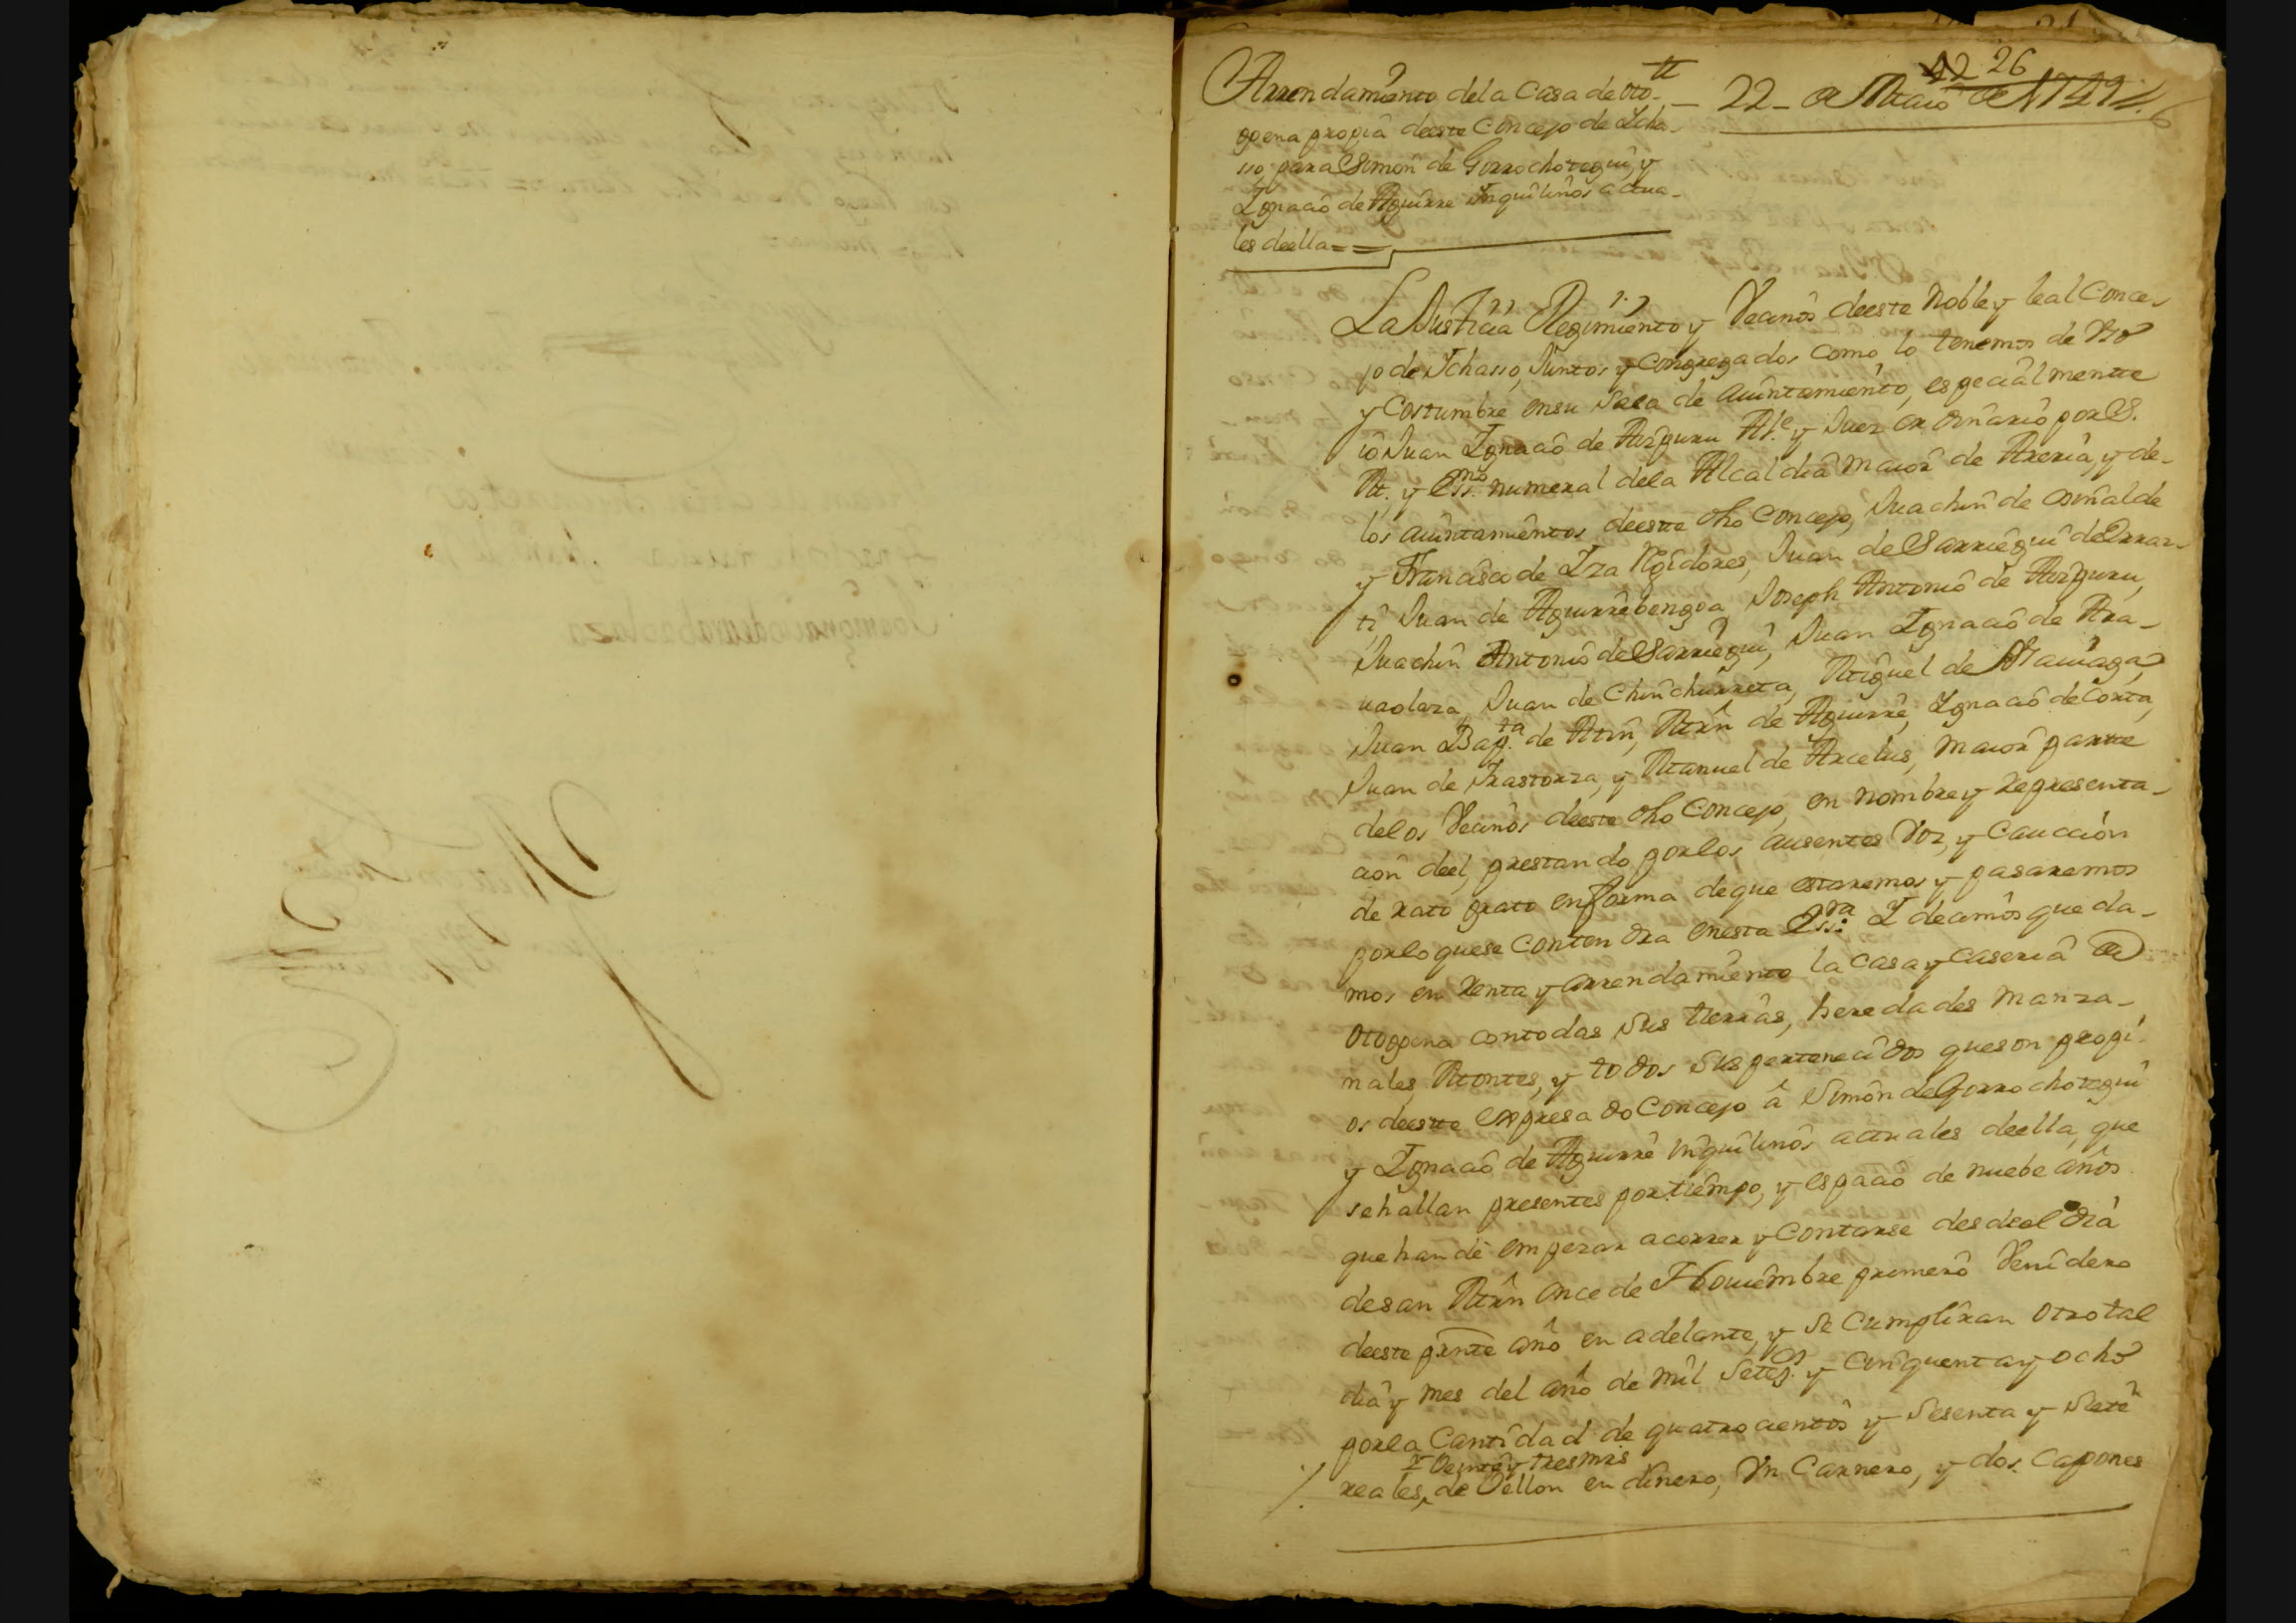 42 26
Arrendamiento dela Casa de Oto-
goena propia deeste Concejo de Icha-
sso para Simon de Gorrochotegui, y
Ignacio de Aguirre Inquilinos actua-
les deella==
22_ de Maio de 1749
La Justicia Regimiento y Vecinos deeste Noble y leal Conce-
jo de Ichasso, Juntos y Congregados como lo tenemos de Vso
y Costumbre ensu Sala de Aiuntamiento, especialmente
io Juan Ignacio de Aizpuru Alle. y Juez ordinario por S.
M. y Essno. numeral dela Alcaldia maior de Areria, y de-
los aiuntamientos deeste dho Concejo, Juachin de osinalde
y Francisco de Iza Rgidores, Juan de Sarriegui de Arraz-
ti Juan de Aguirrebengoa Joseph Antonio de Aizpuru,
Juachin Antonio de Sarriegui, Juan Ignacio de Ara-
uaolaza Juan de Chinchurreta, Miguel de
Juan Bapta. de Min, Mrn de Aguirre, Ignacio de Corta,
Juan de Irastorza, y Manuel de Arcelus, maior parte
delos Vecinos deeste dho Concejo, en nombre y representa-
cion deel, prestando por los ausentes Voz, y Caucción
de rato grato enforma deque estaremos y pasaremos
porlo quese Contendra enesta Essra: I decimos que da-
mos en Renta y arrendamiento la Casa y Caseria de
Otogoena contodas sus tierras, heredades Manza-
nales, Montes, y todos sus pertenecidos queson propi-
os deeste expresado Concejo â Simon de Gorrochotegui
y Ignacio de Aguirre inquilinos actuales deella, que
sehallan presentes por tiempo, y espacio de nuebe años
que han de empezar acorrer y Contarse desdeel dia
desan Mrn once de Nouiembre primero Venidero
deeste prnte año en adelante, y se Cumpliran otro tal
dia y mes del año de mil Setezs. y Cinquenta y ocho
porla Cantidad de quatrocientos y Sesenta y Siete
y Veinte y tres mrs
reales, de Vellon en dinero, Vn Carnero, y dos Capones